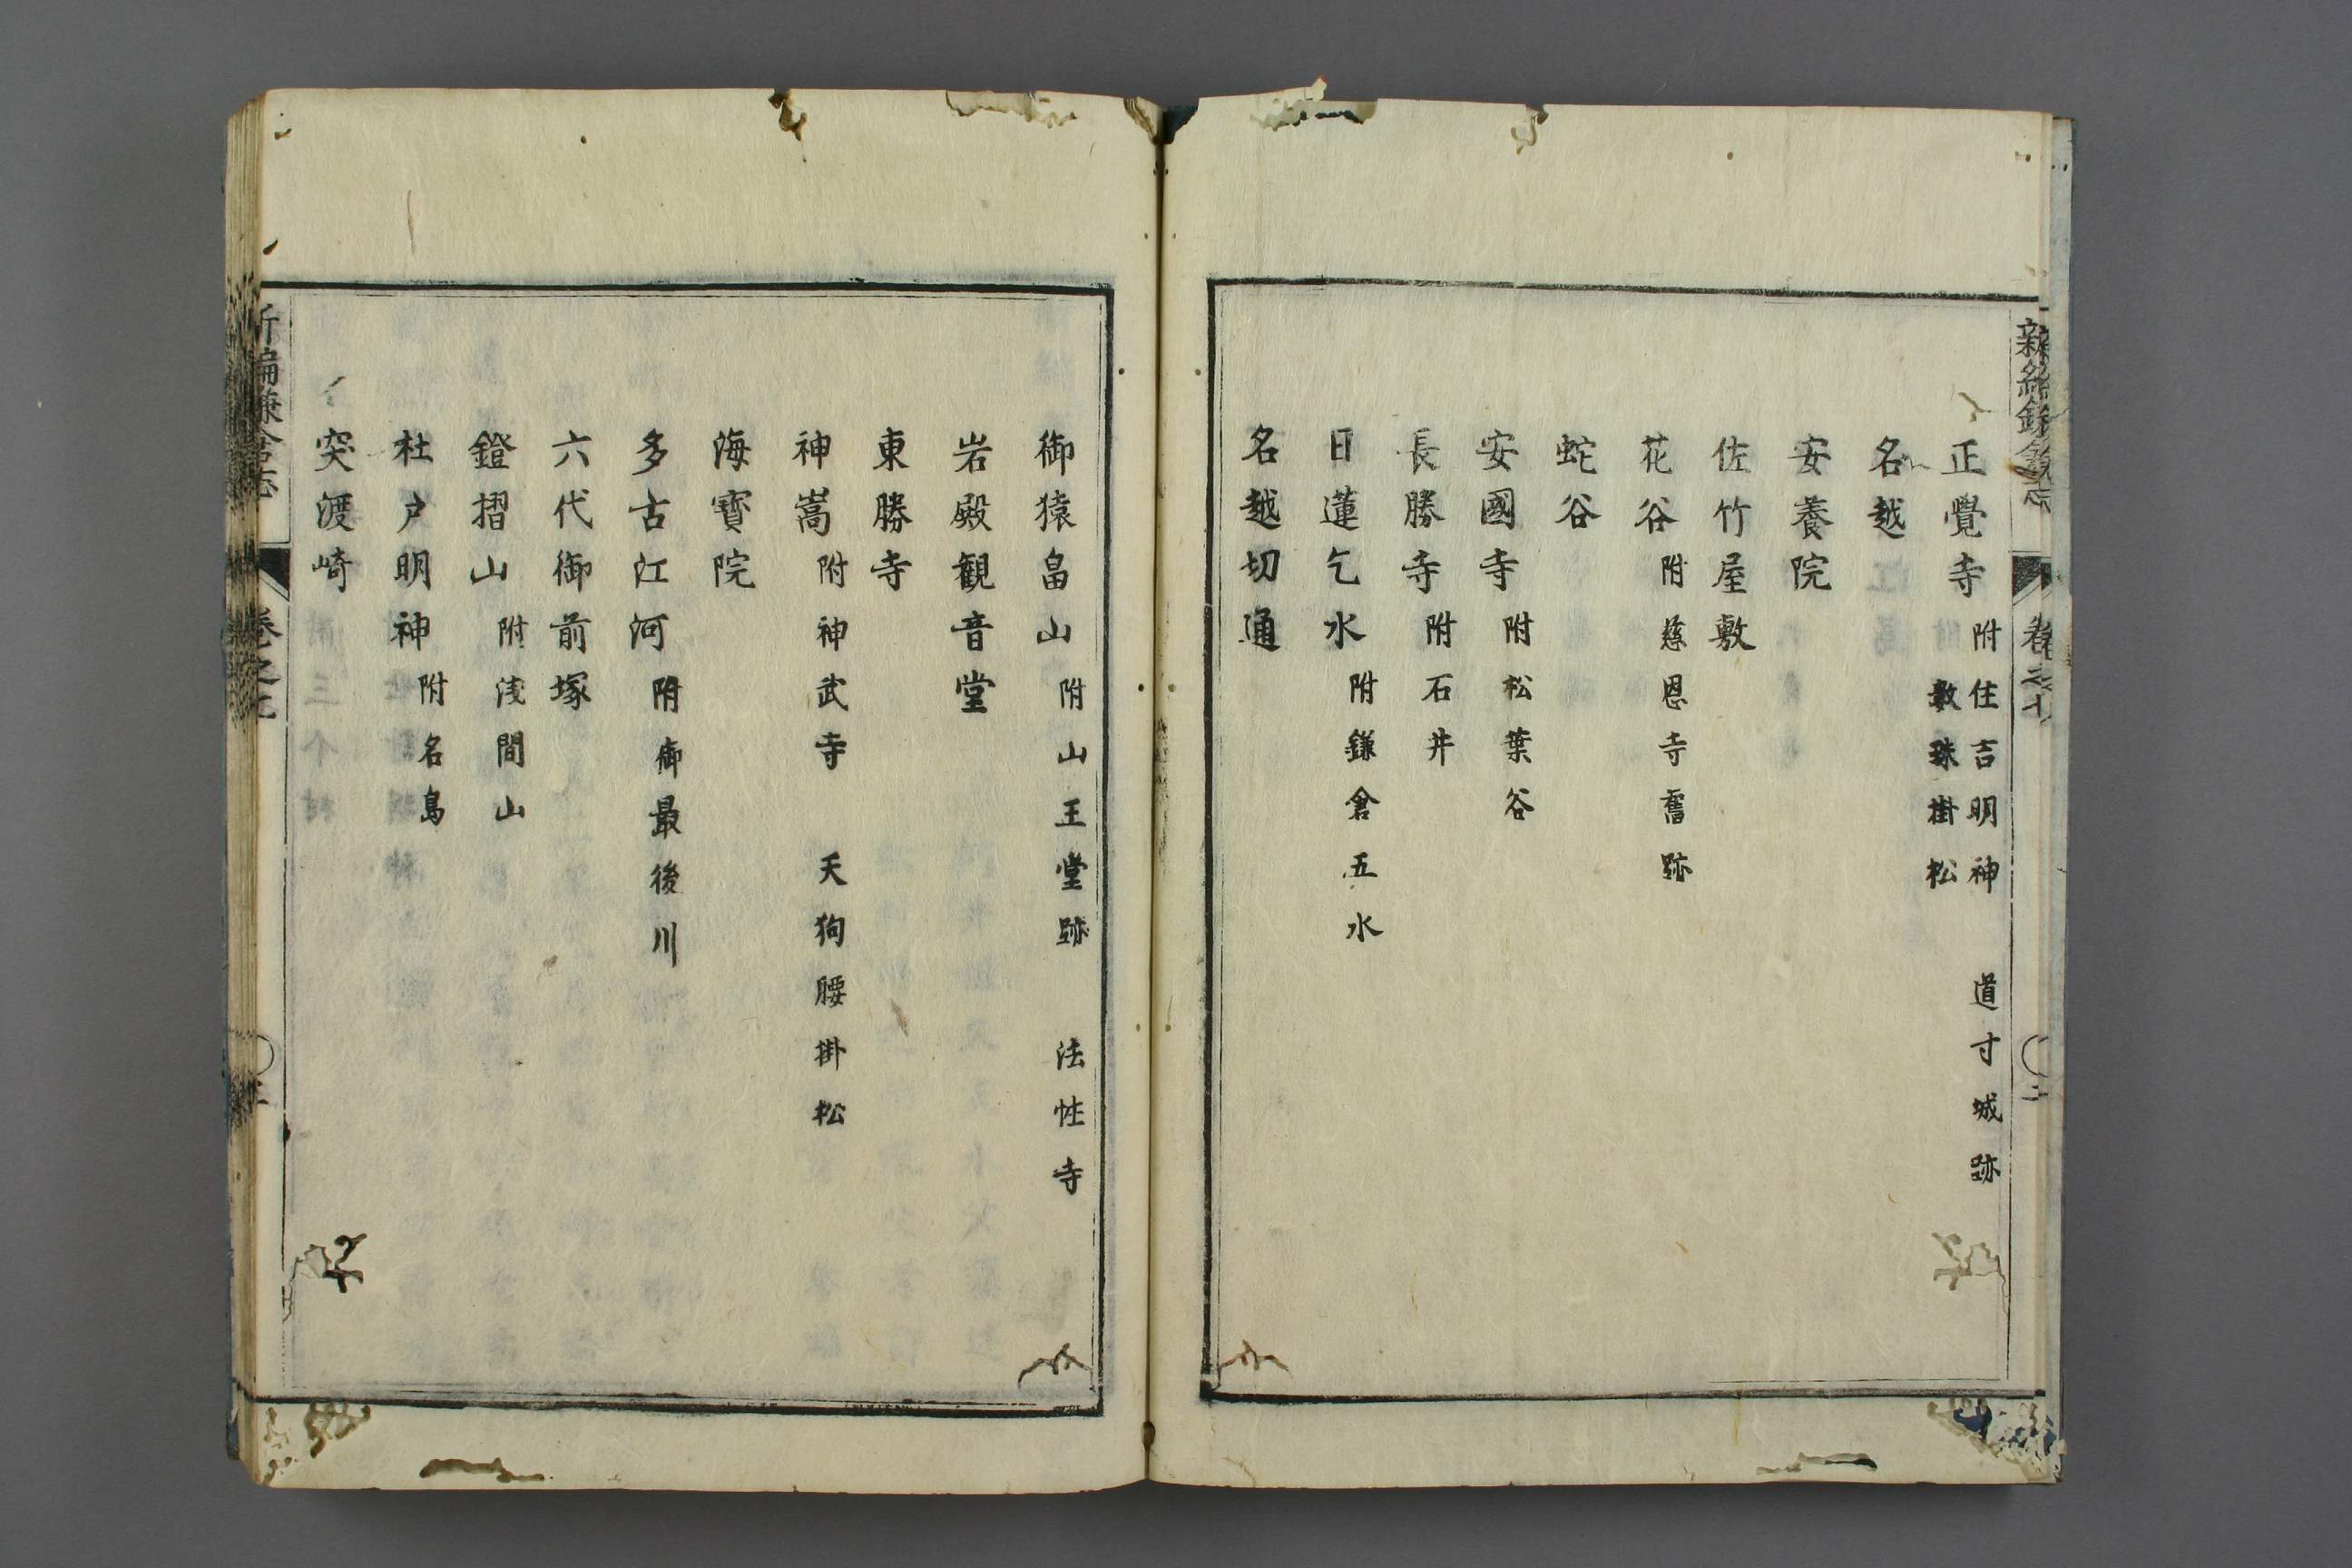 正覺寺 附住吉明神 道寸城跡 數珠掛松
名越
安養院
佐竹屋敷
花谷 附慈恩寺舊跡
蛇谷
安國寺 附松葉谷
長勝寺 附石井
日蓮乞水 附鎌倉五水
名越切通
御猿畠山 附山王堂跡 法性寺
岩殿観音堂
東勝寺
神嵩 附神武寺 天狗腰掛松
海寳院
多古江河 附御最後川
六代御前塚
鐙摺山 附浅間山
杜戸明神 附名島
突渡崎